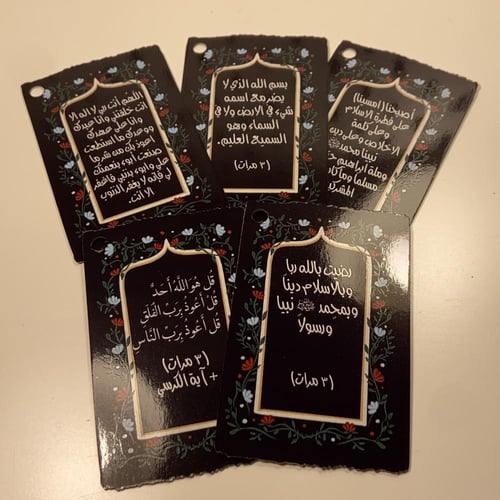 اللهم أنت ربي لا إله إلا
أنت خلقتني وأنا عبدك
وأنا على عهدك
ووعدك ما استطعت
أعوذ بك من شر ما
صنعت أبوء بنعمتك
علي وأبوء بذنبي فاغفر
لي فإنه لا يغفر الذنوب
إلا أنت.
بسم الله الذي لا
يضر مع اسمه
شيء في الارض ولا في
السماء وهو
السميع العليم.
(٣ مرات)
أصبحنا (أمسينا)
على فطرة الإسلام
وعلى كلمة
الاخلاص وعلى دين
نبينا محمد ﷺ
وملة ابراهيم
مسلما وما كان
قُلْ هُوَ اللَّهُ أَحَدٌ
قُلْ أَعُوذُ بِرَبِّ الْفَلَقِ
قُلْ أَعُوذُ بِرَبِّ النَّاسِ
(٣ مرات)
+ آية الكرسي
رضيت بالله ربا
وبالاسلام دينا
وبمحمد ﷺ نبيا
ورسولا
(٣ مرات)